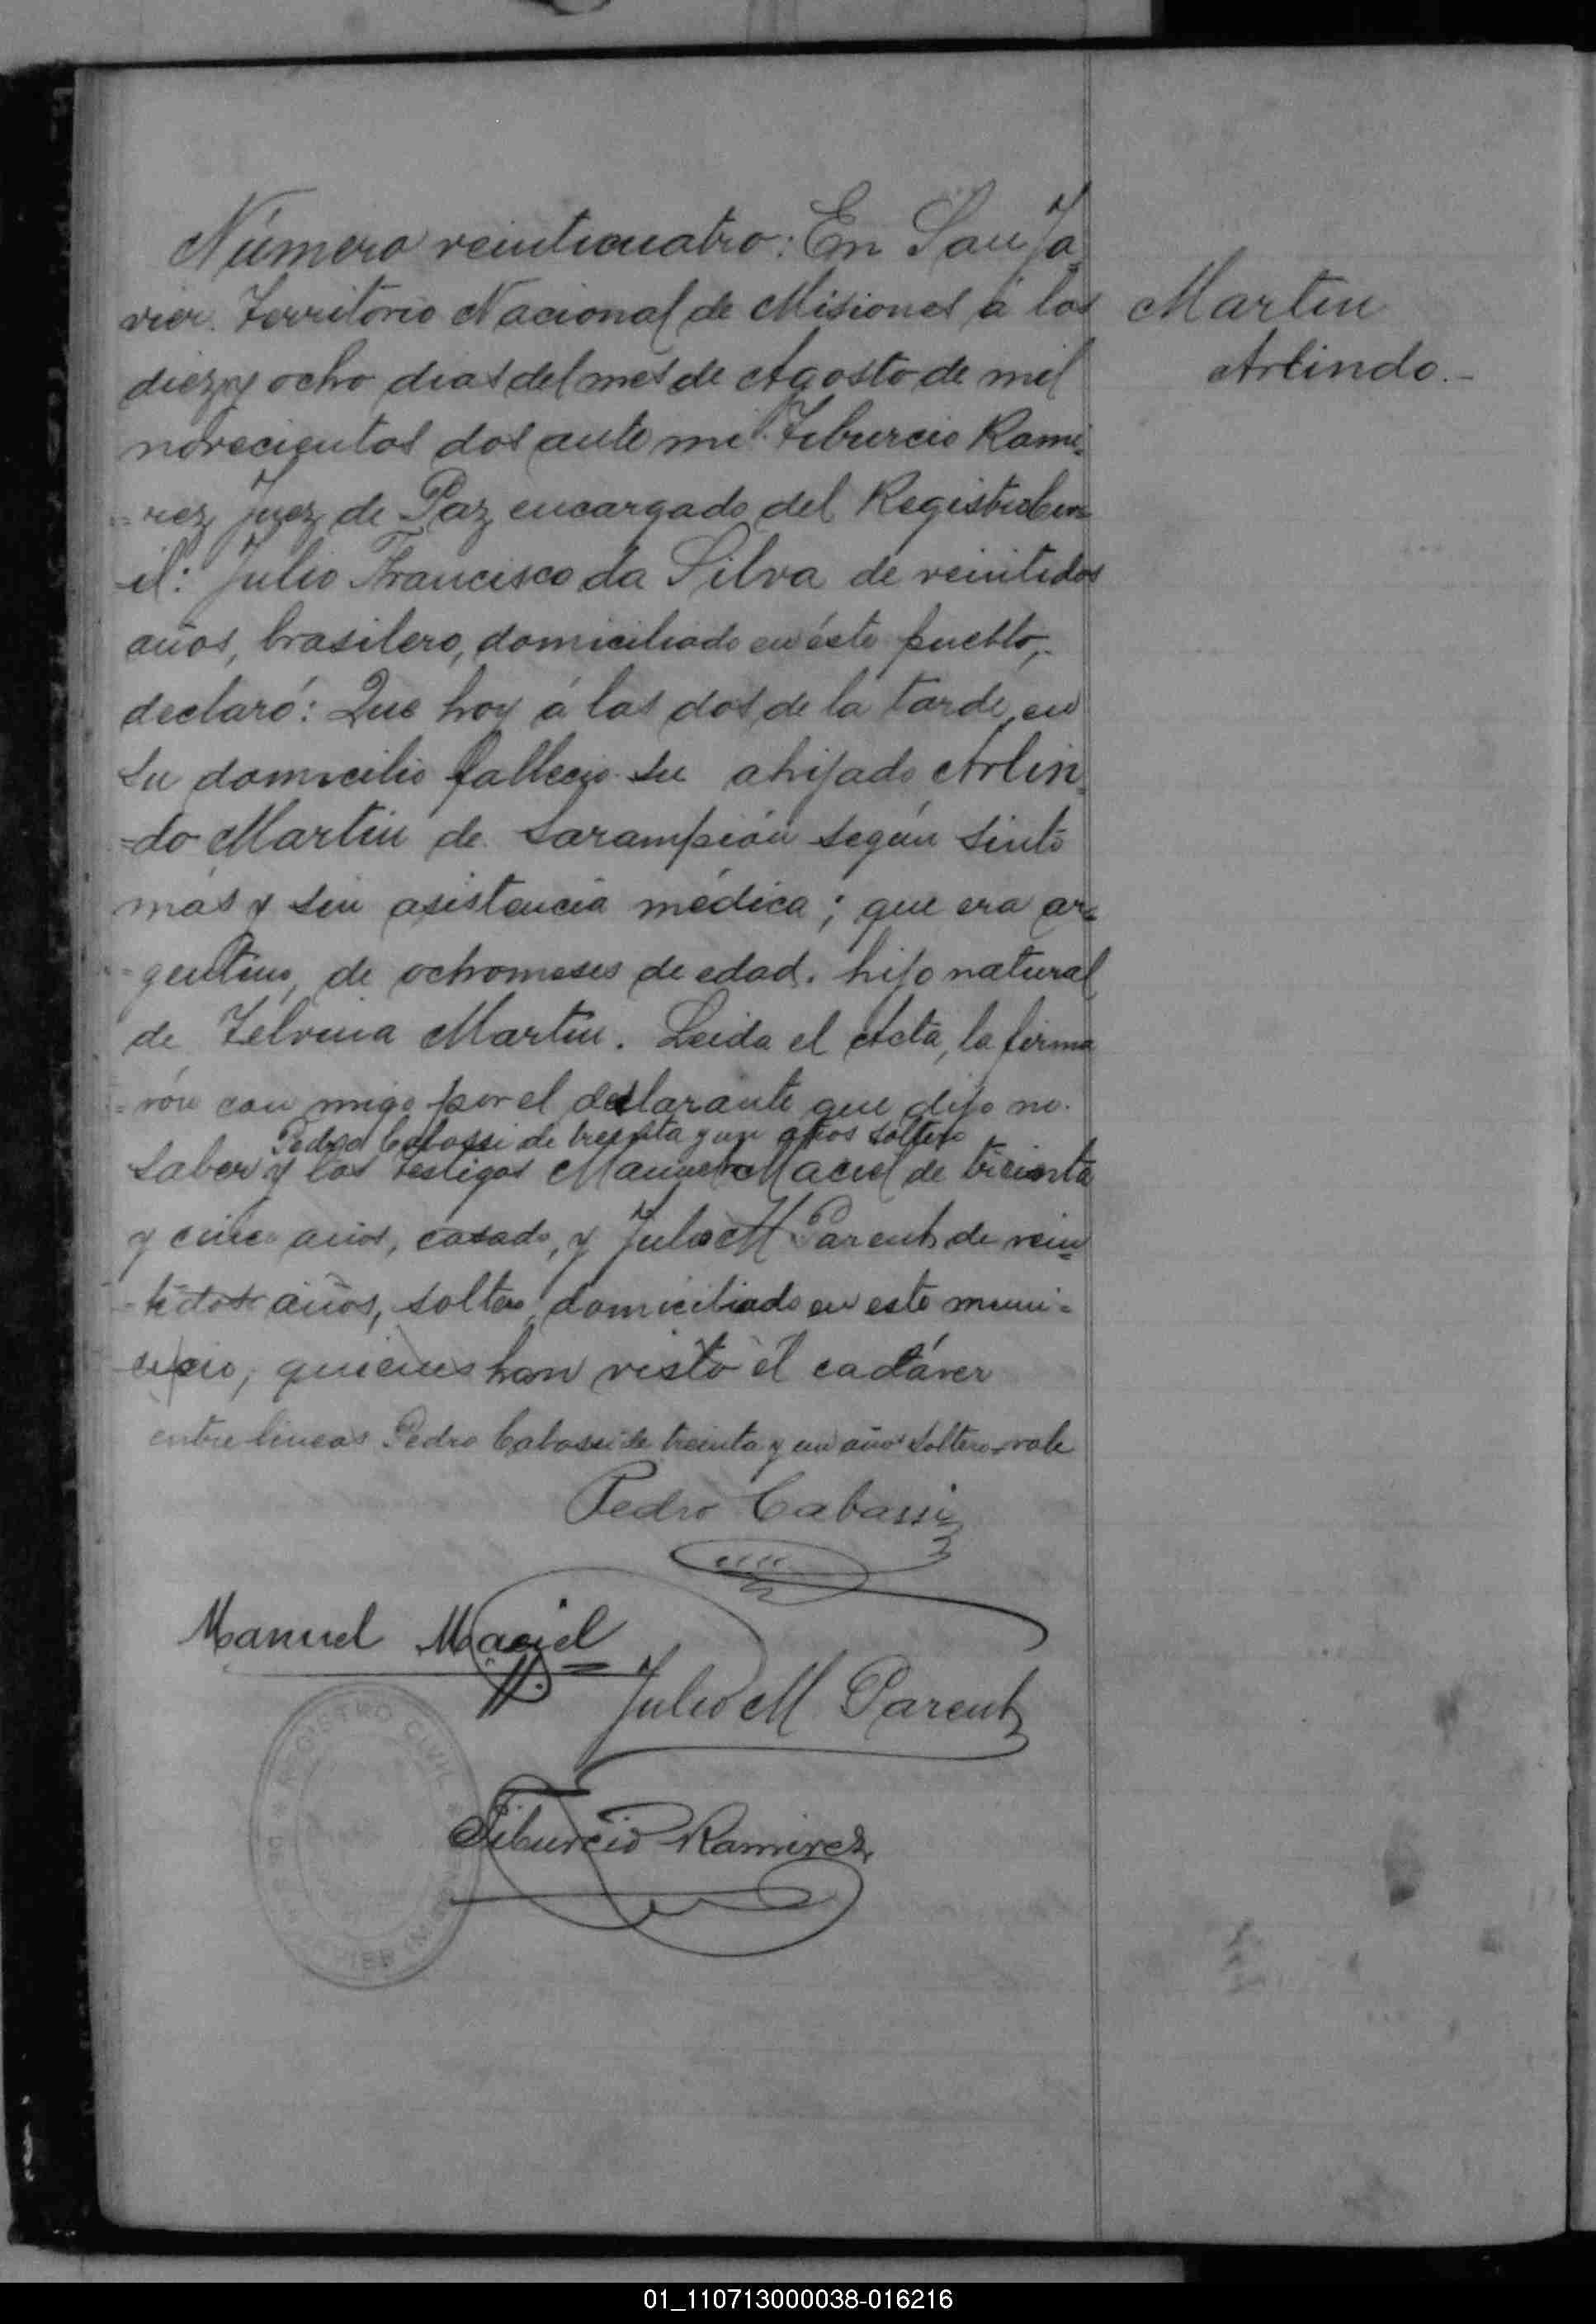 Número veinticuatro: En San Ja
vier. Territorio Nacional de Misiones á los
diez y ocho dias del mes de Agosto de mil
novecientos dos ante mi Tiburcio Rami=
=rez Juez de Paz encargado del Registro Civ=
=il: Julio Francisco da Silva de veintidos
años, brasilero, domiciliado en éste pueblo,
declaró: Que hoy á las dos de la tarde en
su domicilio falleció su ahijado Arlin=
=do Martin de sarampión según sinto
mas y sin asistencia médica; que era ar=
=gentino, de ocho meses de edad. hijo natural
de Zelvina Martin. Leida el Acta, la firma
=ron con migo por el declarante que dijo no
Pedro Cabassi de treinta y un años soltero
saber y los testigos Manuel Maciel de treinta
y cinco años, casado, y Julio M Parent de vein=
=tidos años, soltero, domiciliado en este muni=
cipio, quienes han visto el cadáver
entre lineas Pedro Cabassi de treinta y un años soltero vale
Pedro Cabassi
Manuel Maciel
Julio M Parent
Tiburcio Ramirez
REGISTRO CIVIL
Martin
Arlindo.-
01_110713000038-016216